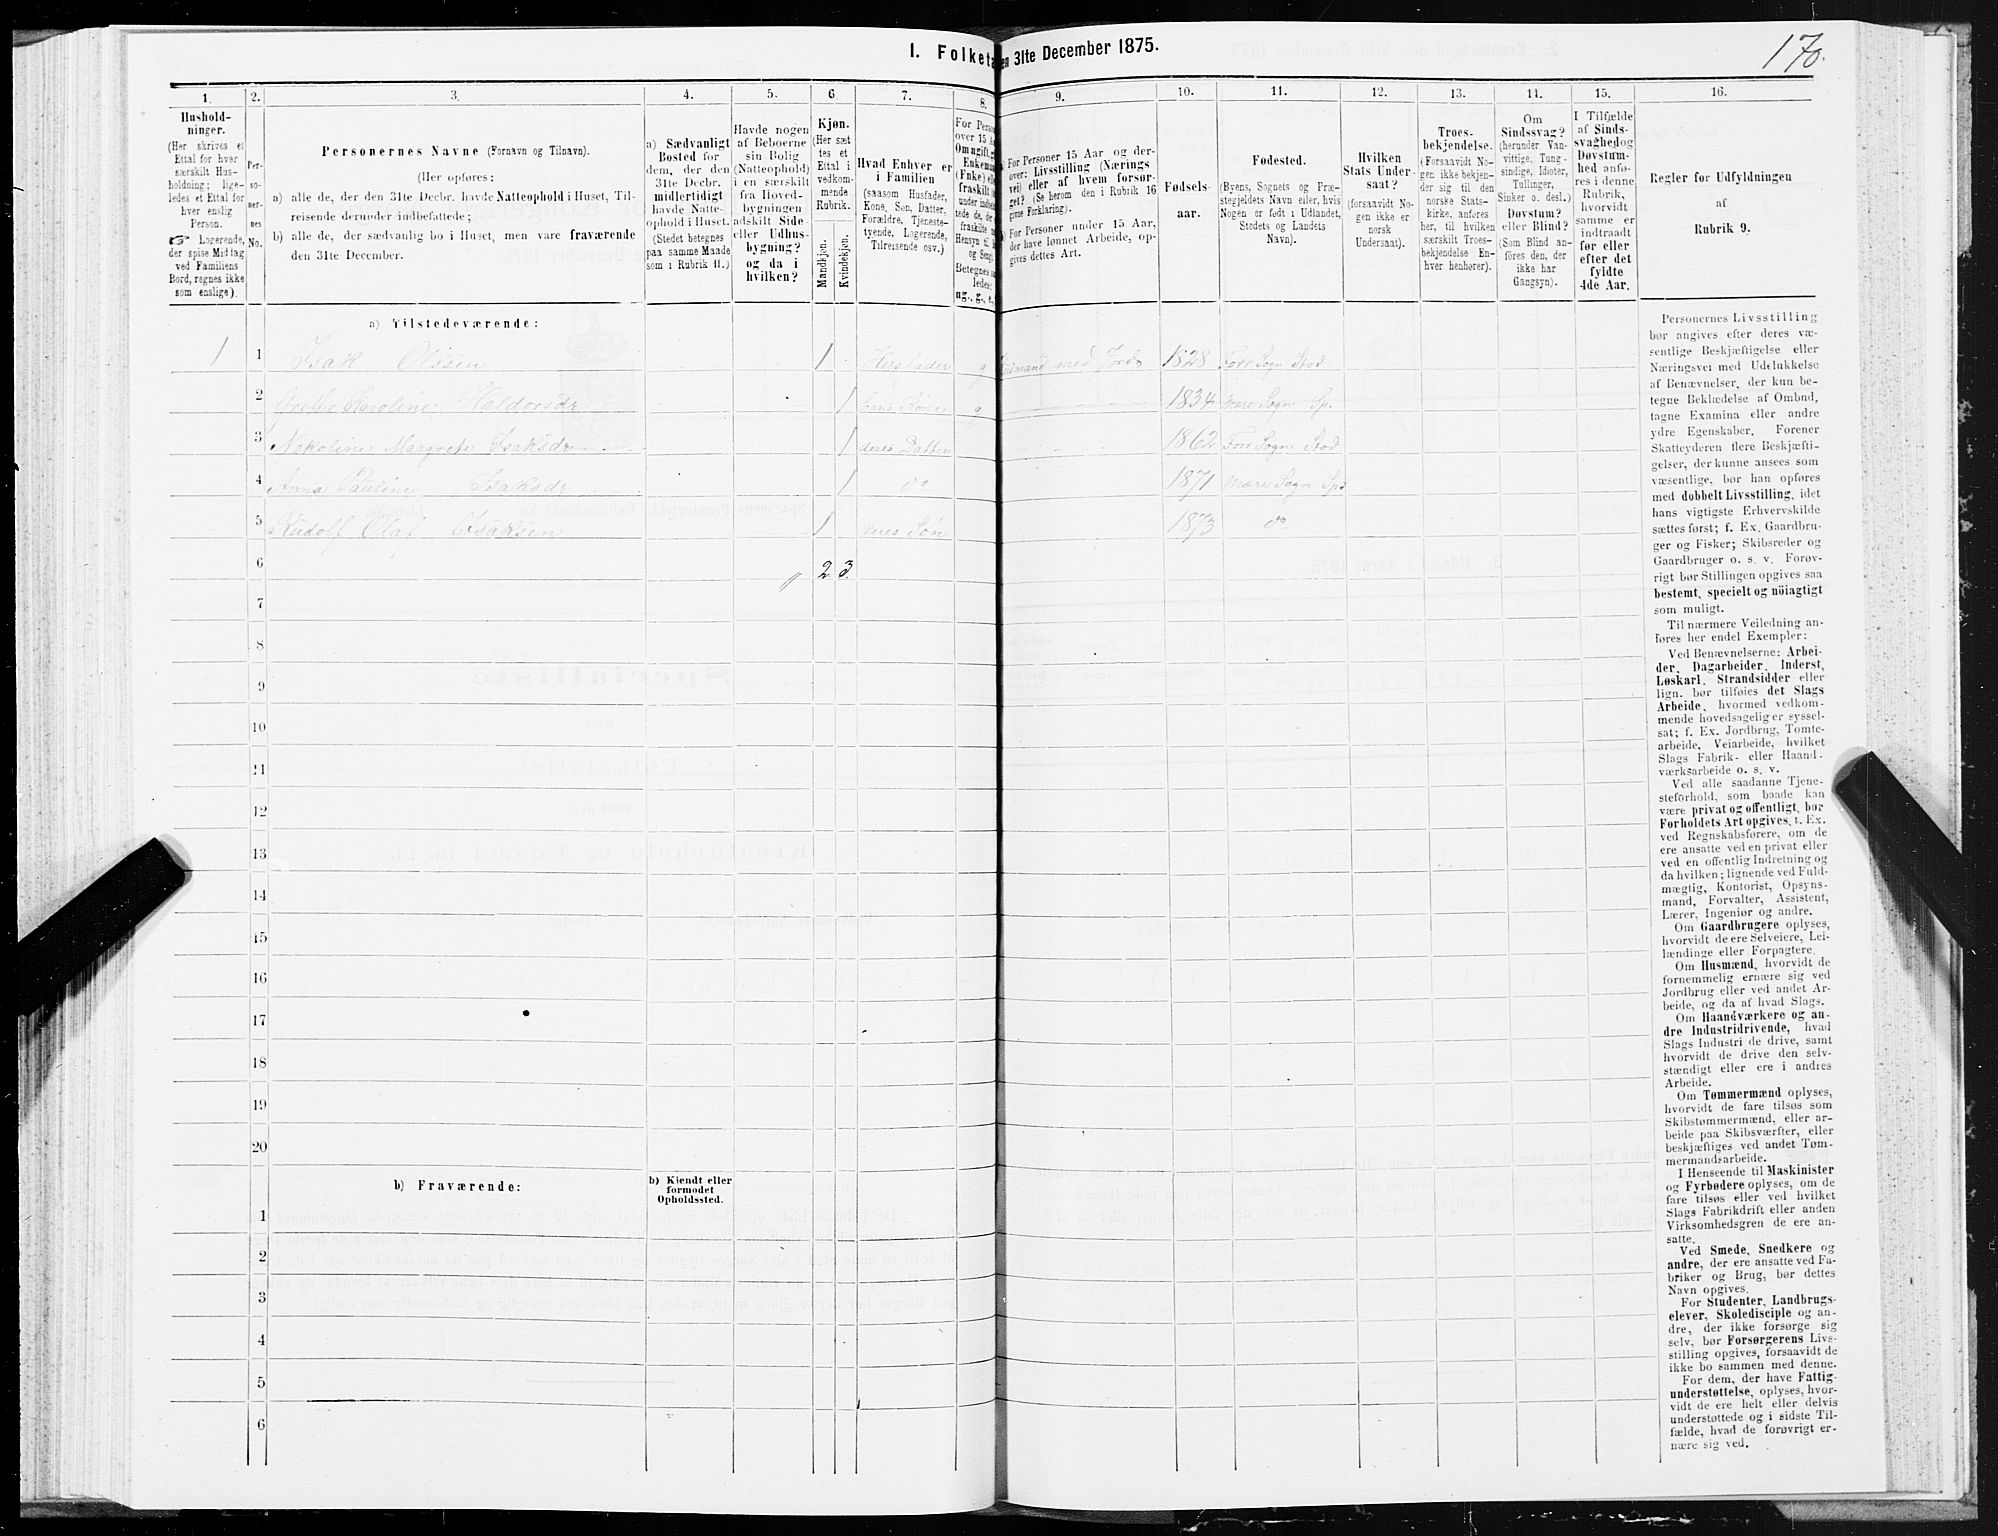 I. Folketa
en 31te December 1875.
170.
1.
Hushold-
ninger.
(Her skrives et
Ettal for hver
særskilt Hus-
holdning; lige-
ledes et Ettal for
hver enslig
Person.
☞ Logerende,
der spise Middag
ved Familiens
Bord, regnes ikke
som enslige).
2.
Per-
so-
ner-
nes
No.
3.
Personernes Navne (Fornavn og Tilnavn).
(Her opføres:
a) alle de, der den 31te Decbr. havde Natteophold i Huset, Til-
reisende derunder indbefattede;
b) alle de, der sædvanlig bo i Huset, men vare fraværende
den 31te December.
4.
a) Sædvanligt
Bosted for
dem, der den
31te Decbr.
midlertidigt
havde Natte-
ophold i Huset.
(Stedet betegnes
paa samme Maade
som i Rubrik 11.)
5.
Havde nogen
af Beboerne
sin Bolig
(Natteophold)
i en særskilt
fra Hoved-
bygningen
adskilt Side-
eller Udhus-
bygning?
og da i
hvilken?
6
Kjøn.
(Her sæt
tes et
Ettal i
vedkom-
mende
Rubrik.
Mandkjøn.
Kvindekjøn.
7.
Hvad Enhver er
i Familien
(saasom Husfader,
Kone, Søn, Datter,
Forældre, Tjeneste-
tyende, Logerende,
Tilreisende osv.)
8.
For Person
over 15 Aa
Om ugift, g
Enkeman
(Fnke) e
fraskilt
9.
For Personer 15 Aar og der-
over: Livsstilling (Nærings
vei) eller af hvem forsør-
get? (Se herom den i Rubrik 16
givne Forklaring).
For Personer under 15 Aar,
der have lønnet Arbeide, op-
gives dettes Art.
10.
Fødsels-
aar.
11.
Fødested.
(Byens, Sognets og Præ-
stegjeldets Navn eller, hvis
Nogen er født i Udlandet,
Stedets og Landets
Navn).
12.
Hvilken
Stats Under-
saat?
(forsaavidt No-
gen ikke er
norsk
Undersaat).
13.
Troes-
bekjendelse.
(Forsaavidt No-
gen ikke bekjen-
der sig til den
norske Stats-
kirke, anføres
her, til hvilken
særskilt Troes-
bekjendelse En-
hver henhører).
14.
Om
Sindssvag?
(herunder Van-
vittige, Tung-
sindige, Idioter,
Tullinger,
Sinker o. desl.)
Døvstum?
eller Blind?
(Som Blind an-
føres den, der
ikke har
Gangsyn).
15.
I Tilfælde
af Sinds-
svaghed og
Døvstum-
hed anfø-
res i denne
Rubrik,
hvorvidt
samme er
indtraadt
før eller
efter det
fyldte
4de Aar.
16.
Regler for Udfyldningen
af
Rubrik 9.
a) Tilstedeværende:
1 1 Isak Olssen 1 Husfader g Husmand med Jord 1828 Foss Sogn Stod
2 Grethe Karoline Haldorsdr 1 hans Kone g 1834 Mære Sogn Sp.
3 Nekoline Margrete Isaksdr 1 deres Datter 1862 Foss Sogn Stod
4 Anna Pauline Isaksdr 1 do 1871 Mære Sogn Sp
5 Rudolf Olaf Isaksen 1 deres Søn 1873 do
6 " 2 3
7
8
9
10
11
12
13
14
15
16
17
18
19
20
b) Fraværende:
b) Kjendt eller
formodet
Opholdssted.
1
2
3
4
5
6
Personernes Livsstilling
bør angives efter deres væ-
sentlige Beskjæftigelse eller
Næringsvei med Udelukkelse
af Benævnelser, der kun be-
tegne Beklædelse af Ombud,
tagne Examina eller andre
ydre Egenskaber. Forener
Skatteyderen flere Beskjæfti-
gelser, der kunne ansees som
væsentlige, bør han opføres
med dobbelt Livsstilling, idet
hans vigtigste Erhvervskilde
sættes først; f. Ex. Gaardbru-
ger og Fisker; Skibsreder og
Gaardbruger o. s. v. Forøv-
rigt bør Stillingen opgives saa
bestemt, specielt og nöiagtigt
som muligt.
Til nærmere Veiledning an-
føres her endel Exempler:
Ved Benævnelserne: Arbei-
der, Dagarbeider, Inderst,
Løskarl, Strandsidder eller
lign. bør tilføies det Slags
Arbeide, hvormed vedkom-
mende hovedsagelig er syssel-
sat; f. Ex. Jordbrug, Tomte-
arbeide, Veiarbeide, hvilket
Slags Fabrik- eller Haand-
værksarbeide o. s. v.
Ved alle saadanne Tjene-
steforhold, som baade kan
være privat og offentligt, bør
Forholdets Art opgives, t. Ex.
ved Regnskabsførere, om de
ere ansatte ved en privat eller
ved en offentlig Indretning og
da hvilken; lignende ved Fuld-
mægtig, Kontorist, Opsyns-
mand, Forvalter, Assistent,
Lærer, Ingeniør og andre.
Om Gaardbrugere oplyses,
hvorvidt de ere Selveiere, Lei-
lændinge eller Forpagtere.
Om Husmænd, hvorvidt de
fornemmelig ernære sig ved
Jordbrug eller ved andet Ar-
beide, og da af hvad Slags.
Om Haandværkere og an-
dre Industridrivende, hvad
Slags Industri de drive, samt
hvorvidt de drive den selv-
stændigt eller ere i andres
Arbeide.
Om Tømmermænd oplyses,
hvorvidt de fare tilsøs som
Skibstømmermænd, eller ar-
beide paa Skibsværfter, eller
beskjæftiges ved andet Tøm-
mermandsarbeide.
I Henseende til Maskinister
og Fyrbødere oplyses, om de
fare tilsøs eller ved hvilket
Slags Fabrikdrift eller anden
Virksomhedsgren de ere an-
satte.
Ved Smede, Snedkere og
andre, der ere ansatte ved Fa-
briker og Brug, bør dettes
Navn opgives.
For Studenter, Landbrugs-
elever, Skoledisciple og an-
dre, der ikke forsørge sig
selv, bør Forsørgerens Livs-
stilling opgives, forsaavidt de
ikke bo sammen med denne.
For dem, der have Fattig-
understøttelse, oplyses, hvor-
vidt de ere helt eller delvis
understøttede og i sidste Til-
fælde, hvad de forøvrigt er-
nære sig ved.